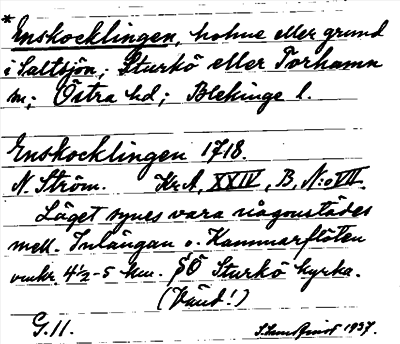 * Enskocklingen, holme eller grund
i Saltsjön; Sturkö eller Torhamn
sn; Östra hd; Blekinge l.
Enskocklingen 1718.
N. Ström. Kr.A. XXIV, B, N:o VII.
Läget synes vara någonstädes
mell. Inlängan o. Kammarflöten
omkr. 4½-5 km. SÖ Sturkö kyrka.
(Vänd!)
G.11. 1937.